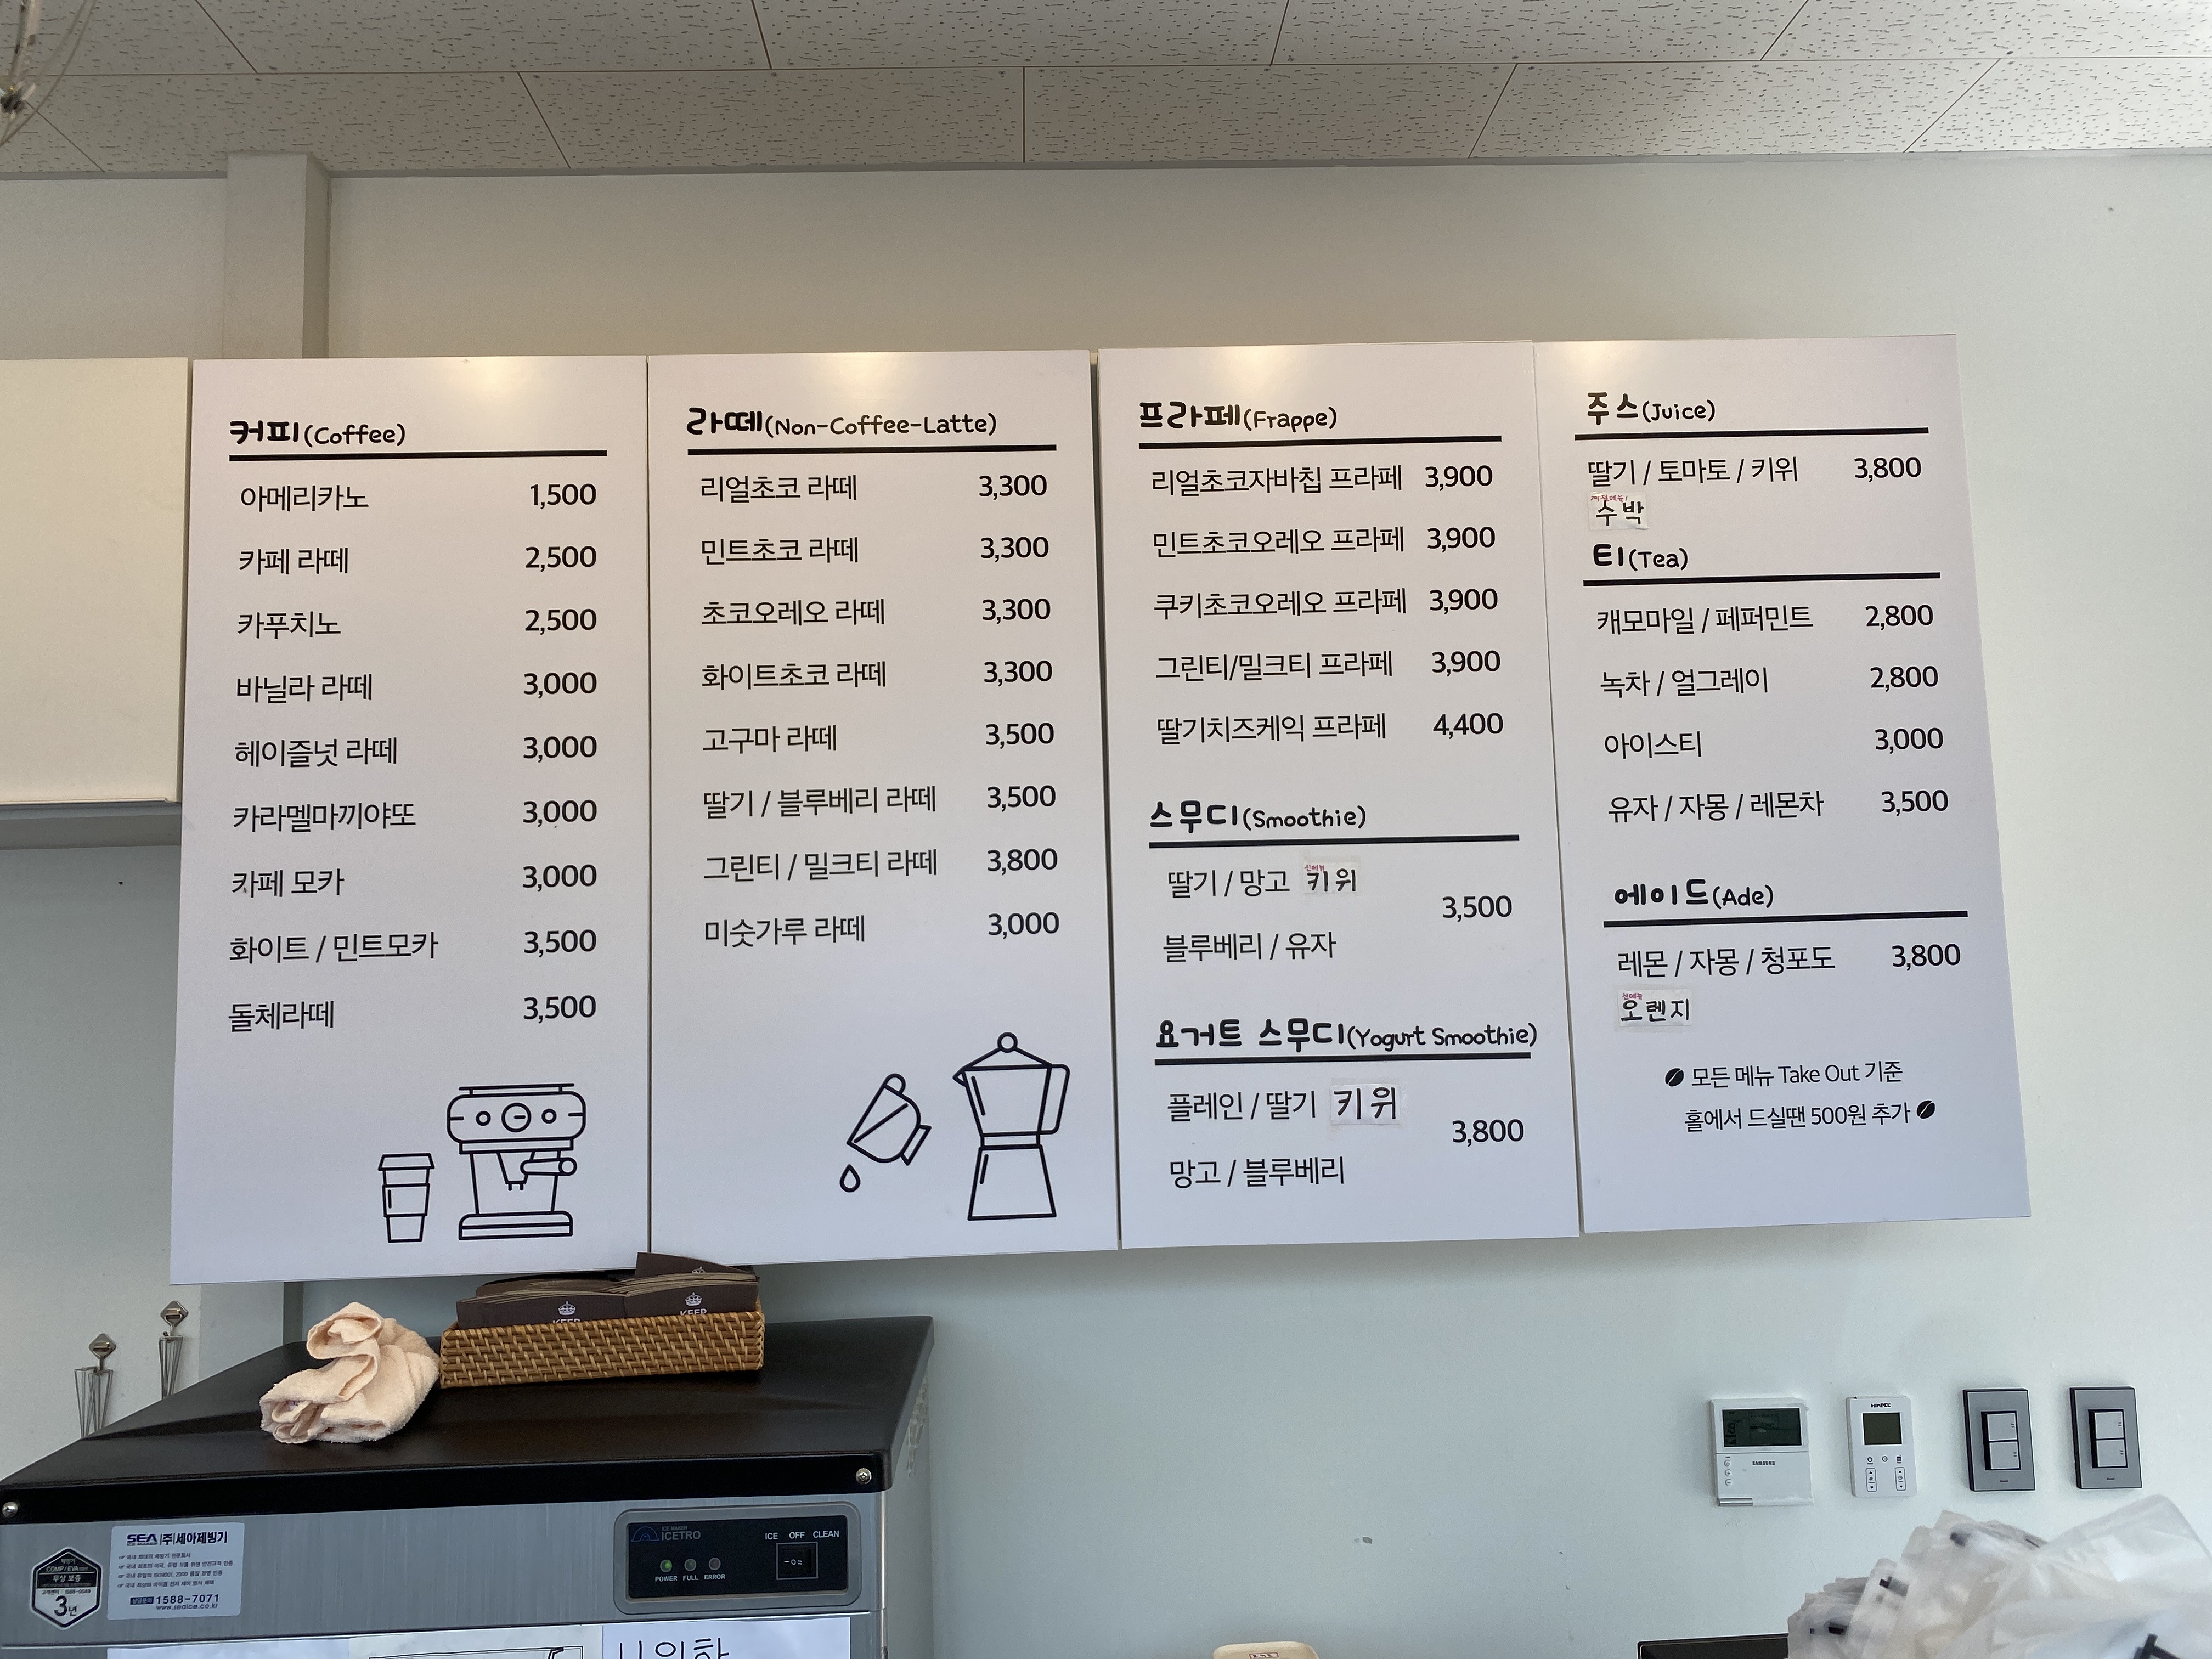 커피(Coffee)
아메리카노 1,500
카페 라떼 2,500
카푸치노 2,500
바닐라 라떼 3,000
헤이즐넛 라떼 3,000
카라멜마끼야또 3,000
카페 모카 3,000
화이트 / 민트모카 3,500
돌체라떼 3,500
라떼(Non-Coffee-Latte)
리얼초코 라떼 3,300
민트초코 라떼 3,300
초코오레오 라떼 3,300
화이트초코 라떼 3,300
고구마 라떼 3,500
딸기 / 블루베리 라떼 3,500
그린티 / 밀크티 라떼 3,800
미숫가루 라떼 3,000
프라페(Frappe)
리얼초코자바칩 프라페 3,900
민트초코오레오 프라페 3,900
쿠키초코오레오 프라페 3,900
그린티/밀크티 프라페 3,900
딸기치즈케익 프라페 4,400
스무디(Smoothie)
신메뉴
딸기 / 망고 키위
3,500
블루베리 / 유자
요거트 스무디(Yogurt Smoothie)
플레인 / 딸기 키위
3,800
망고 / 블루베리
주스(Juice)
딸기 / 토마토 / 키위 3,800
수박
티(Tea)
캐모마일 / 페퍼민트 2,800
녹차 / 얼그레이 2,800
아이스티 3,000
유자 / 자몽 / 레몬차 3,500
에이드(Ade)
레몬 / 자몽 / 청포도 3,800
신메뉴
오렌지
모든 메뉴 Take Out 기준
홀에서 드실땐 500원 추가
KEEP
KEEP
SAMSUNG
HIMPEL
SEA (주)세아제빙기
1588-7071
www.seaice.co.kr
무상 보증
3년
ICE MAKER
ICETRO
ICE OFF CLEAN
POWER FULL ERROR